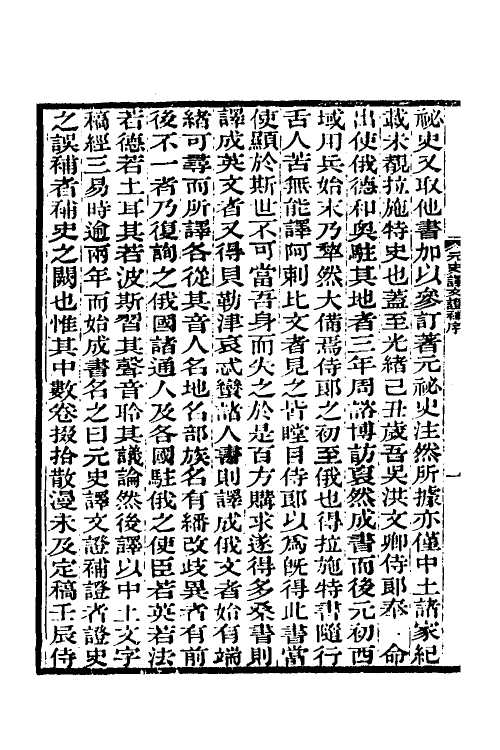 元史譯文證補序
一
祕史又取他書加以參訂著元祕史注然所據亦僅中土諸家紀
載未覩拉施特史也蓋至光緒己丑歲吾吳洪文卿侍郎奉 命
出使俄德和奧駐其地者三年周諮博訪裒然成書而後元初西
域用兵始末乃犂然大備焉侍郎之初至俄也得拉施特書隨行
舌人苦無能譯阿剌比文者見之皆瞠目侍郎以為旣得此書當
使顯於斯世不可當吾身而失之於是百方購求遂得多桑書則
譯成英文者又得貝勒津哀忒蠻諸人書則譯成俄文者始有端
緒可尋而所譯各從其音人名地名部族名有繙改歧異者有前
後不一者乃復詢之俄國諸通人及各國駐俄之使臣若英若法
若德若土耳其若波斯習其聲音聆其議論然後譯以中土文字
稿經三易時逾兩年而始成書名之曰元史譯文證補證者證史
之誤補者補史之闕也惟其中數卷掇拾散漫未及定稿壬辰侍